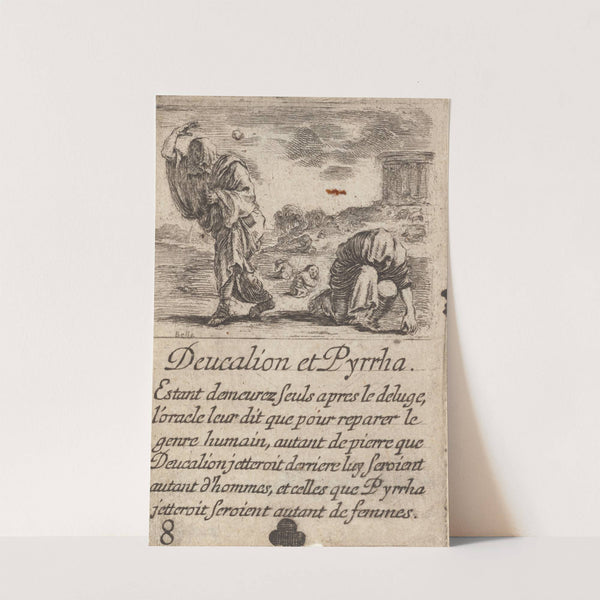 Bella
Deucalion et Pyrrha.
Estant demeurez seuls apres le deluge,
l'oracle leur dit que pour reparer le
genre humain, autant de pierre que
Deucalion jetteroit derriere luy seroient
autant d'hommes, et celles que Pyrrha
jetteroit seroient autant de femmes.
8